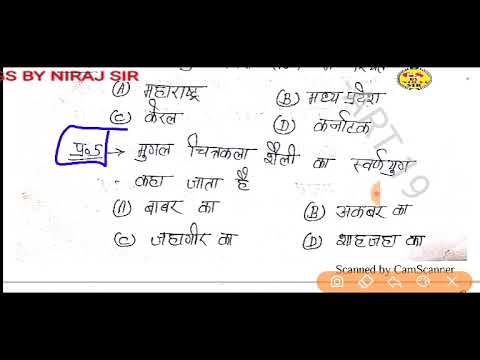 GS BY NIRAJ SIR
(A) महाराष्ट्र
(B) मध्य प्रदेश
(C) केरल
(D) कर्नाटक
प्र.5 → मुगल चित्रकला शैली का स्वर्ण युग
कहा जाता है
(A) बाबर का
(B) अकबर का
(C) जहागीर का
(D) शाहजहा का
PART 19
Scanned by CamScanner